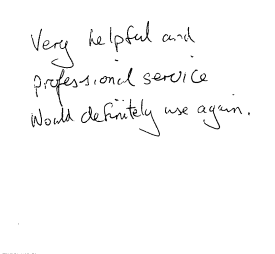 Very helpful and
professional service
Would definitely use again.